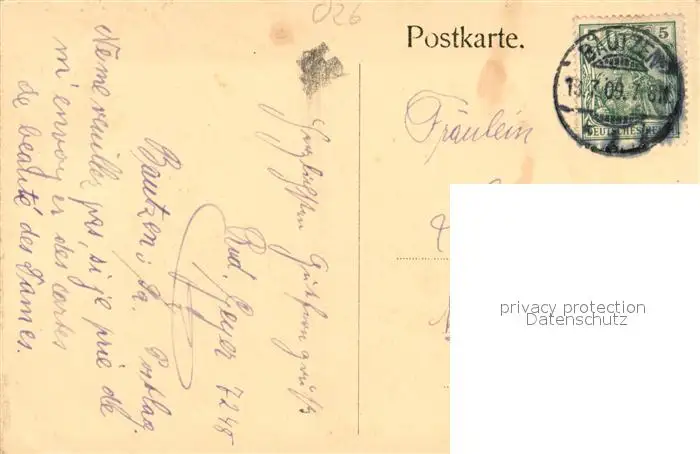 026
Postkarte.
5
BAUTZEN
13.7.09. 7-8N
DEUTSCHES REICH
Fräulein
privacy protection
Datenschutz
Herzlichsten Gutferngruß
Rud. Geyer 7248
Bautzen i/Sa. Postlag.
Ne me veuillez pas, si je prie de
m'envoyer des cartes
de beauté des Dames.